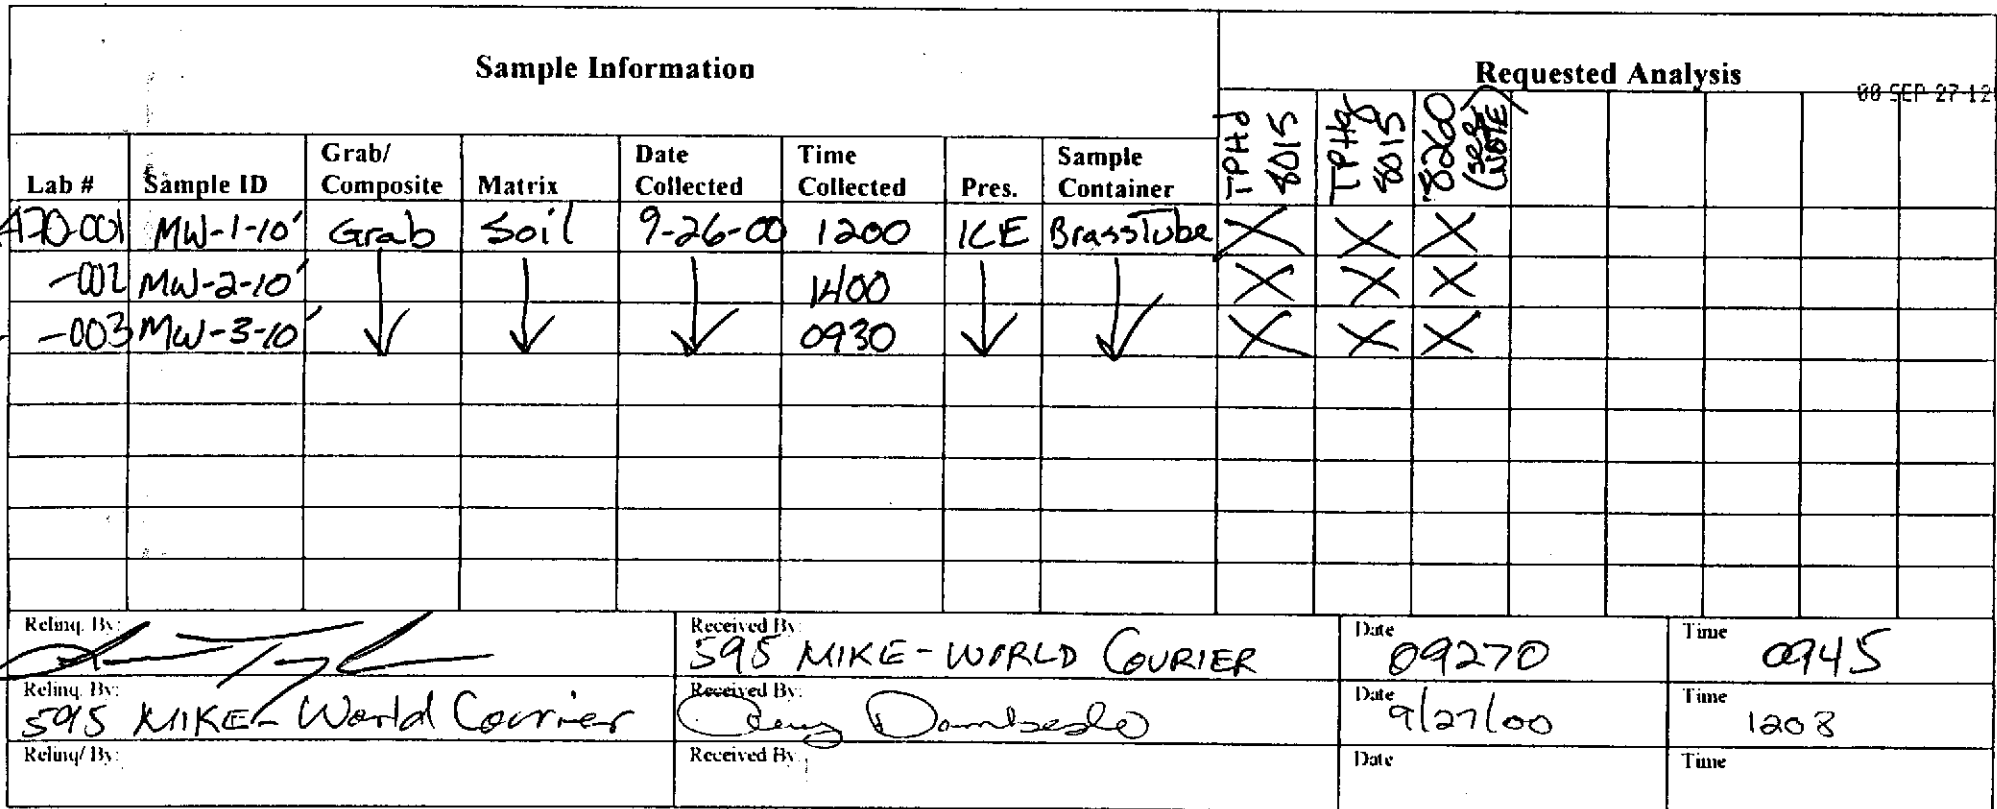 Sample Information
Requested Analysis
00 SEP 27 12
Lab # Sample ID Grab/ Composite Matrix Date Collected Time Collected Pres. Sample Container TPHd 8015 TPHg 8015 8260 (see NOTE)
470-001 MW-1-10' Grab Soil 9-26-00 1200 ICE Brass Tube X X X
-002 MW-2-10' 1400 X X X
-003 MW-3-10' 0930 X X X
Relinq. By: Received By: 595 MIKE - WORLD COURIER Date 09270 Time 0945
Relinq. By: 595 MIKE - World Courier Received By: Date 9/27/00 Time 1208
Relinq/ By: Received By: Date Time